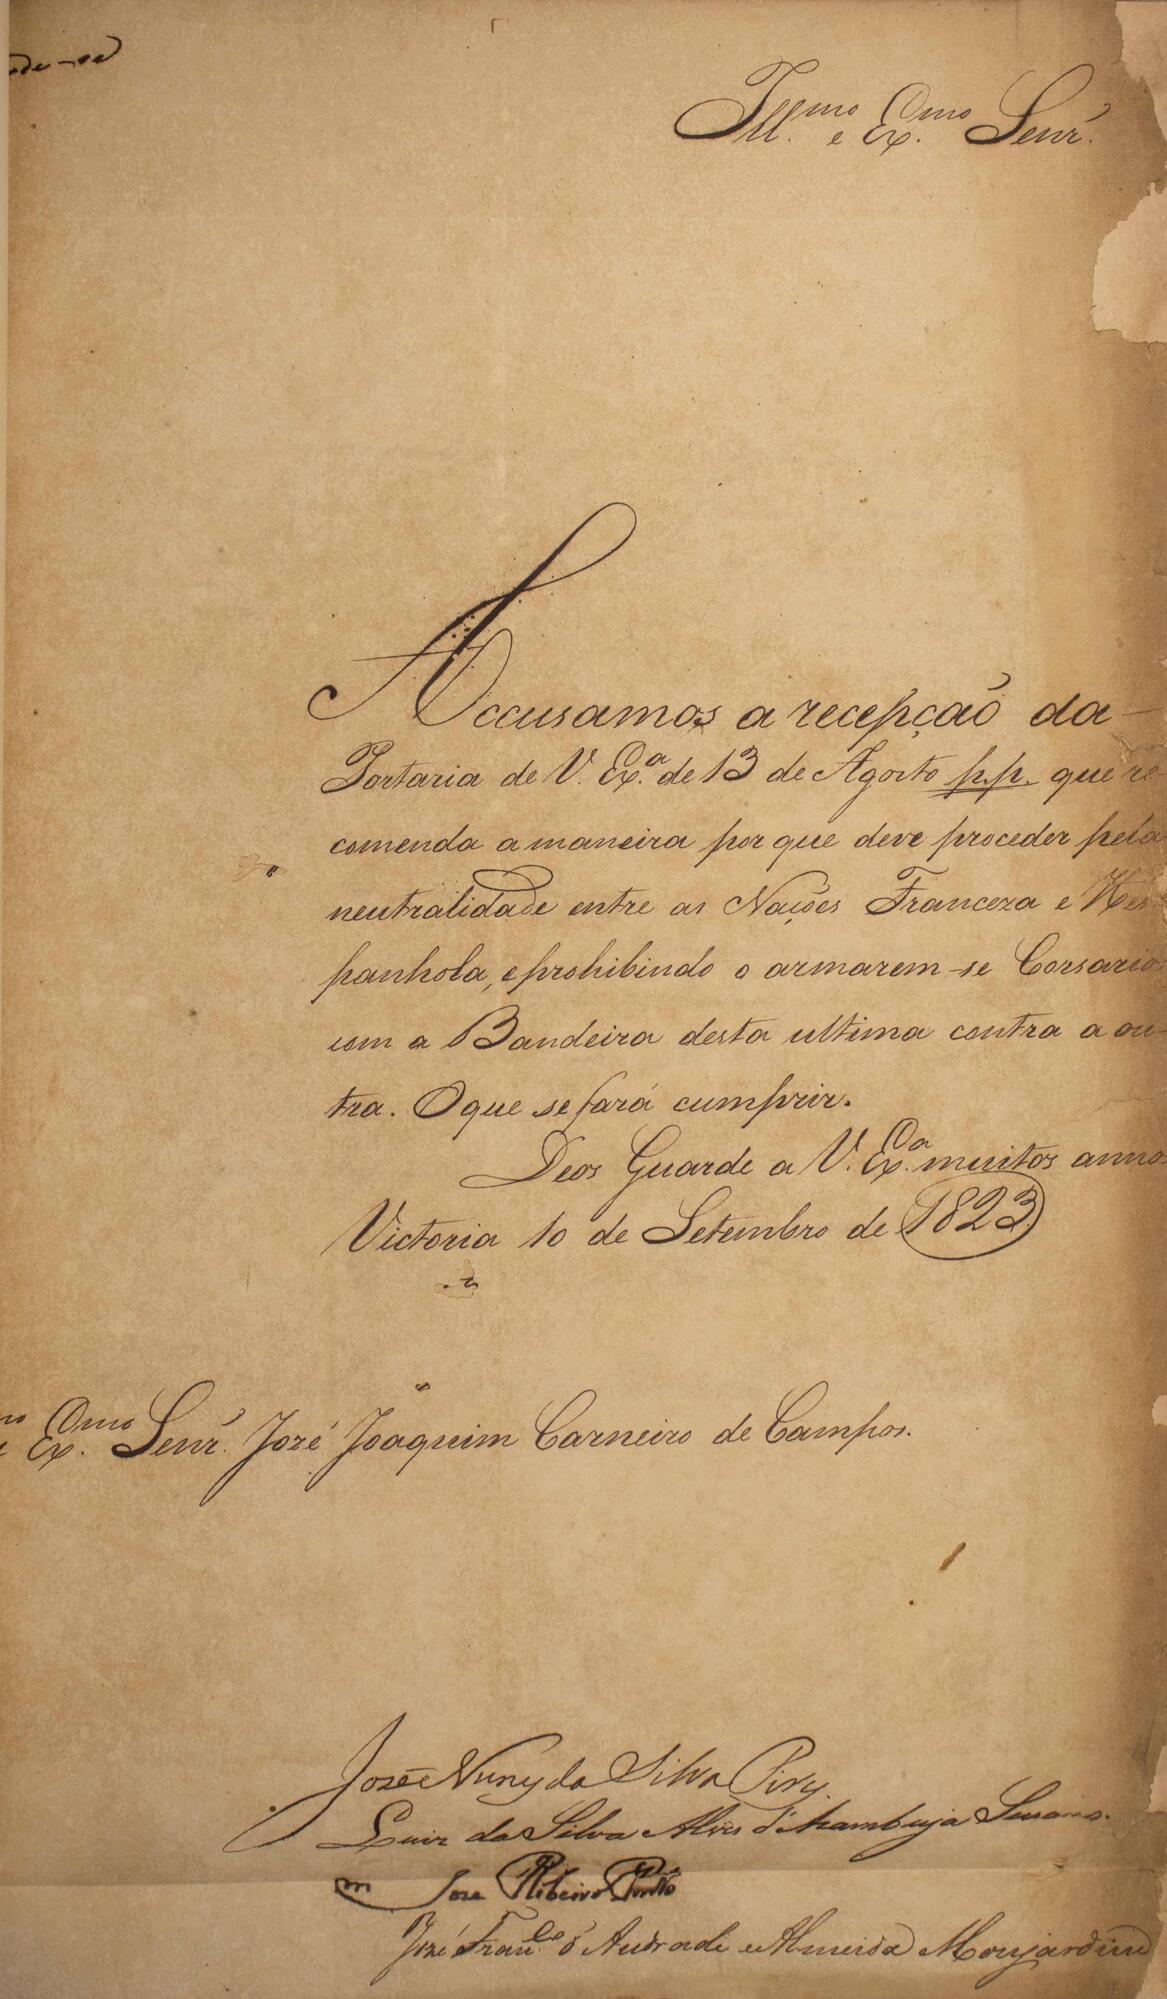 Ill.mo e Ex.mo Senr.
Accusamos a recepção da
Portaria de V. Ex.a de 13 de Agosto p.p. que re
comenda a maneira por que deve proceder pela
neutralidade entre as Nações Franceza e Hes
panhola, e prohibindo o armarem-se Corsarios
com a Bandeira desta ultima contra a ou-
tra. O que se fará cumprir.
Deos Guarde a V. Ex.a muitos annos
Victoria 10 de Setembro de 1823.
Ex.mo Senr. José Joaquim Carneiro de Campos.
José Nunes da Silva Pires
Luiz da Silva Alves d'Azambuja Suzano.
José Ribeiro Pinto
José Fran.co d'Andrade e Almeida Monjardim